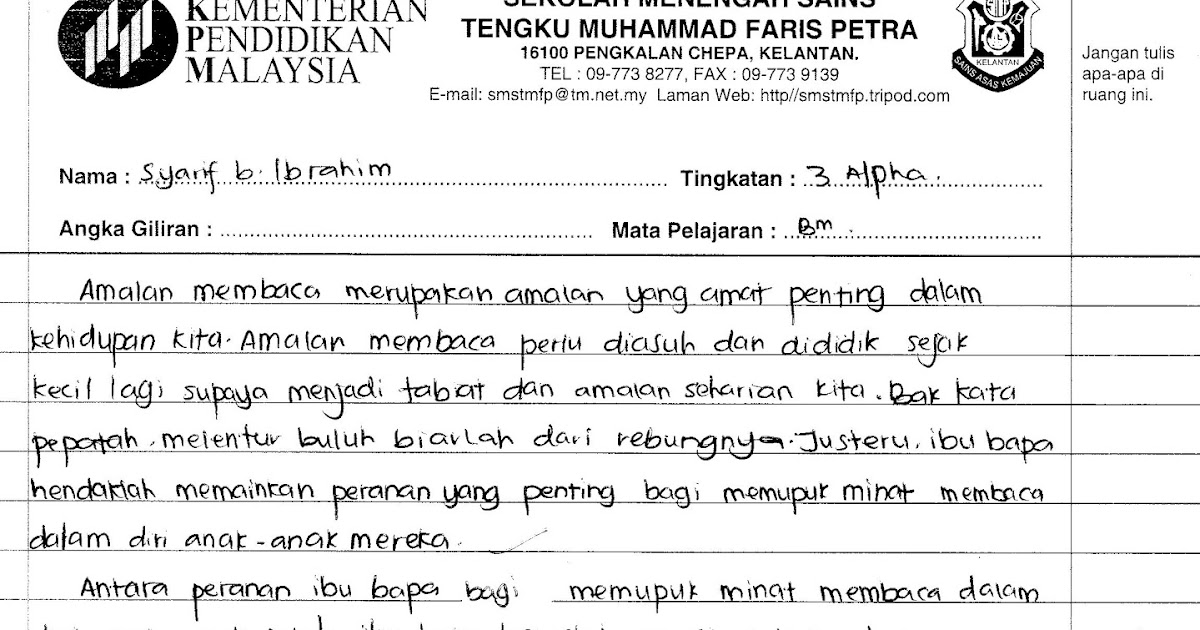 KEMENTERIAN
PENDIDIKAN
MALAYSIA
SEKOLAH MENENGAH SAINS
TENGKU MUHAMMAD FARIS PETRA
16100 PENGKALAN CHEPA, KELANTAN.
TEL : 09-773 8277, FAX : 09-773 9139
E-mail: smstmfp@tm.net.my Laman Web: http//smstmfp.tripod.com
KELANTAN
SAINS ASAS KEMAJUAN
Jangan tulis
apa-apa di
ruang ini.
Nama : Syarif b. Ibrahim Tingkatan : 3 Alpha.
Angka Giliran : Mata Pelajaran : BM.
Amalan membaca merupakan amalan yang amat penting dalam
kehidupan kita. Amalan membaca perlu diasuh dan dididik sejak
kecil lagi supaya menjadi tabiat dan amalan seharian kita. Bak kata
pepatah, melentur buluh biarlah dari rebungnya. Justeru, ibu bapa
hendaklah memainkan peranan yang penting bagi memupuk minat membaca
dalam diri anak-anak mereka.
Antara peranan ibu bapa bagi memupuk minat membaca dalam